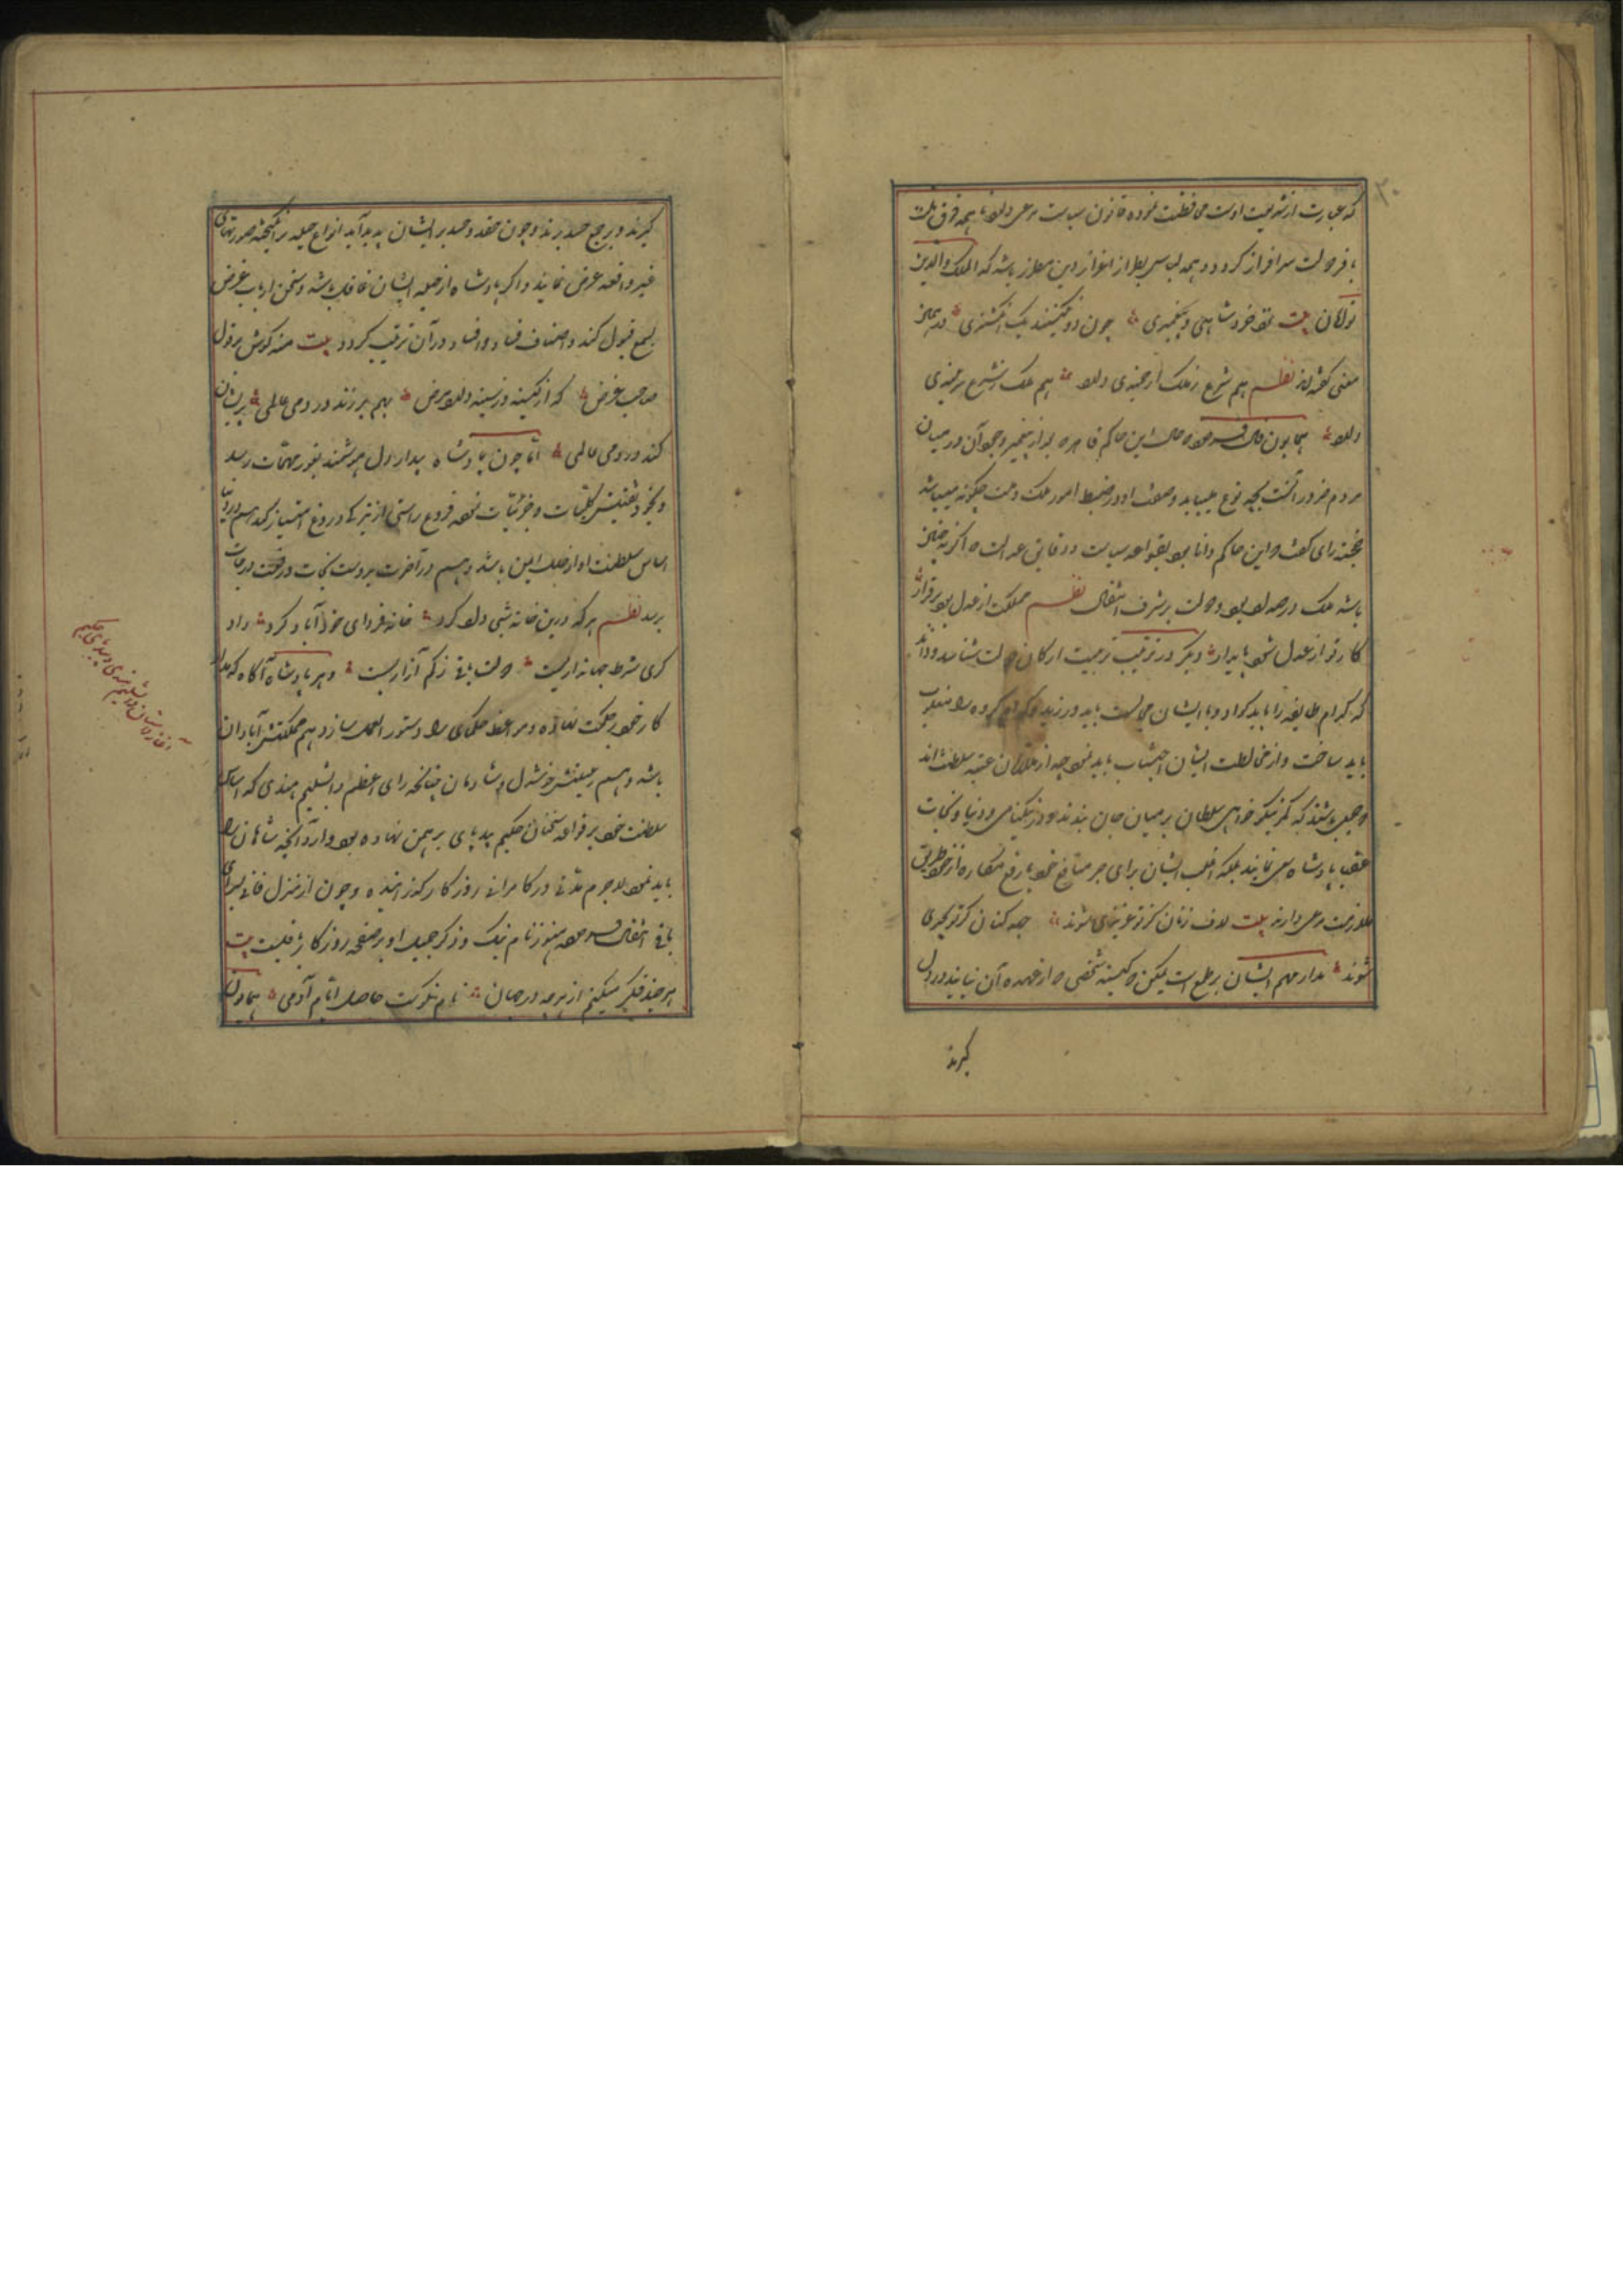 که عبارت از شریعت اوست محافظت نموده قانون سیاست مرعی دارد تا همه فرق ملت
با فر دولت سرافراز گردد و همه لباس بطراز اعزاز دین مطرز باشد که الملک والدین
توأمان بیت نزد خرد شاهی و پیغمبری چون دو نگینند یک انگشتری در همین
معنی گفته‌اند نظم هم شرع ز ملک ارجمندی دارد هم ملک ز شرع سربلندی
دارد همایون فال فرمود حال این حاکم قاهر که بعد از پیغمبر وجود آن در میان
مردم ضرور است بچه نوع میباید و صفت او در ضبط امور ملک و ملت چگونه میباشد
خجسته رای گفت که این حاکم دانا بود بقواعد سیاست و دقایق عدالت که اگر نه چنین
باشد ملک در صدد زوال بود و دولت بر شرف انتقال نظم مملکت از عدل بود برقرار
کار تو از عدل شود پایدار دیگر در ترتیب تربیت ارکان دولت شناسد و داند
که کدام طایفه را باید و با ایشان مجالست باید ورزید و کدام گروه را منکوب
باید ساخت و از مخالطت ایشان اجتناب باید نمود چه از ملازمان عتبه سلطنت اند
جمعی باشند که کمر نیکو خواهی سلطان بر میان جان بندند و در نیکنامی دنیا و نجات
عقبی پادشاه سعی نمایند بلکه اغلب ایشان برای جر منافع خود یا رفع مکاره از خود طریق
ملازمت مرعی دارند بیت لاف زنان کز تو عزیزی شوند جهد کنان کز تو بچیزی
شوند مدار مهم ایشان بر طمع است یمکن که کینه شخصی که از عهده آن نیایند در دل
گیرند
گیرند و بر جمع حسد برند و چون حقد و حسد بر ایشان پدید آید انواع حیله برانگیخته صورتهای
غیر واقعه عرض نمایند و اگر پادشاه از حیله ایشان غافل باشد و سخن ارباب غرض
بسمع قبول کند و اصناف فساد و افساد در آن ترتیب گردد بیت منه گوش بر قول
صاحب غرض که از کینه در سینه دارد مرض بهم برزند در دمی عالمی پریشان
کند در دمی عالمی اما چون پادشاه بیدار دل هوشمند بغور مهمات رسد
و بخود تفتیش کلیات و جزئیات نموده فروغ راستی از تیرگی دروغ امتیاز کند هم در دنیا
اساس سلطنت او از خلل ایمن باشد و هم در آخرت بدولت نجات و رفعت درجات
برسد نظم هر که درین خانه شبی داد کرد خانه فردای خود آباد کرد داد
گری شرط جهانداریست دولت باقی ز کم آزاریست و هر پادشاه آگاه که مدار
کار خود بر حکمت نهاده و مواعظ حکمای را دستور العمل سازد هم مملکتش آبادان
باشد و هم رعیتش خوشدل و شادمان چنانچه رای اعظم دابشلیم هندی که اساس
سلطنت خود بر قواعد سخنان حکیم بیدپای برهمن نهاده بود و از و آنچه شاهان را
باید نمود لاجرم مدتی در کامرانی روزگار گذرانیده و چون از منزل فانی بسرای
باقی انتقال فرمود هنوز نام نیک و ذکر جمیل او بر صفحه روزگار باقیست بیت
هر چند فکر میکنیم از هر چه در جهان نام نکوست حاصل ایام آدمی همایون
آغاز داستان دابشلیم هندی و بیدپای حکیم